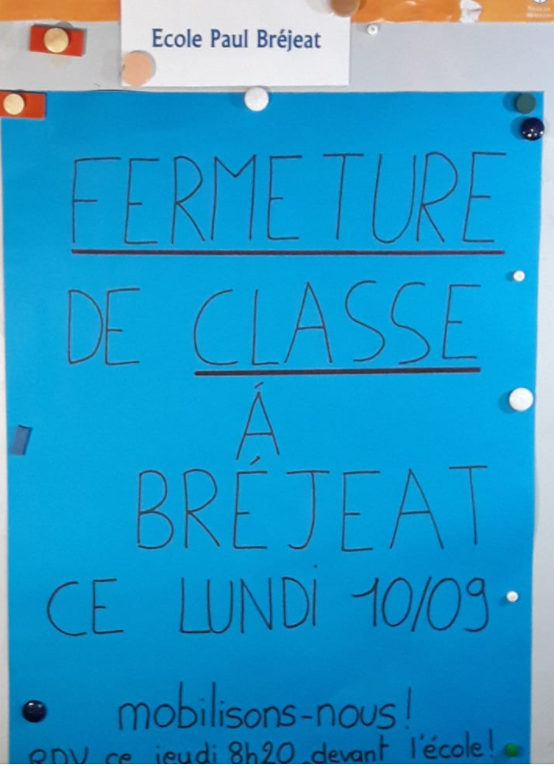 Ecole Paul Bréjeat
FERMETURE
DE CLASSE
Á
BRÉJEAT
CE LUNDi 10/09
mobilisons-nous!
RDV ce jeudi 8h20 devant l'école!